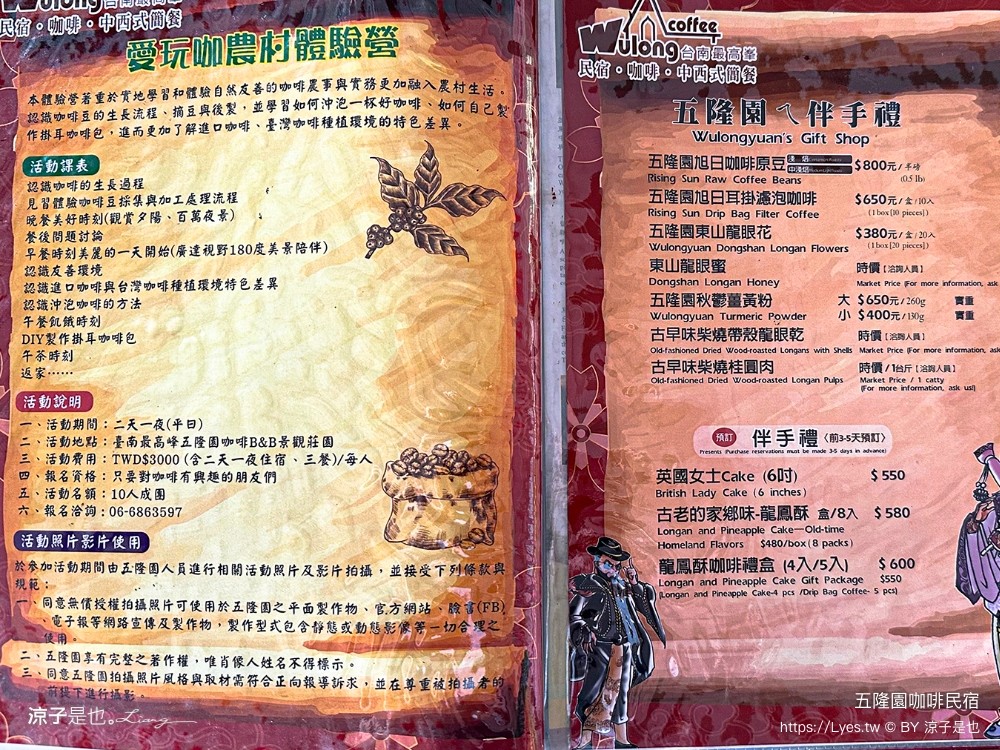 Wulong 台南最高峯
民宿・咖啡・中西式簡餐
愛玩咖農村體驗營
本體驗營著重於實地學習和體驗自然友善的咖啡農事與實務更加融入農村生活。
認識咖啡豆的生長流程、摘豆與後製，並學習如何沖泡一杯好咖啡、如何自己製
作掛耳咖啡包，進而更加了解進口咖啡、臺灣咖啡種植環境的特色差異。
活動課表
認識咖啡的生長過程
見習體驗咖啡豆採集與加工處理流程
晚餐美好時刻(觀賞夕陽、百萬夜景)
餐後問題討論
早餐時刻美麗的一天開始(廣達視野180度美景陪伴)
認識友善環境
認識進口咖啡與台灣咖啡種植環境特色差異
認識沖泡咖啡的方法
午餐飢餓時刻
DIY製作掛耳咖啡包
午茶時刻
返家……
活動說明
一、活動期間：二天一夜(平日)
二、活動地點：臺南最高峰五隆園咖啡B&B景觀莊園
三、活動費用：TWD$3000(含二天一夜住宿、三餐)/每人
四、報名資格：只要對咖啡有興趣的朋友們
五、活動名額：10人成團
六、報名洽詢：06-6863597
活動照片影片使用
於參加活動期間由五隆園人員進行相關活動照片及影片拍攝，並接受下列條款與
規範：
一、同意無償授權拍攝照片可使用於五隆園之平面製作物、官方網站、臉書(FB)
、電子報等網路宣傳及製作物，製作型式包含靜態或動態影像等一切合理之
使用。
二、五隆園享有完整之著作權，唯肖像人姓名不得標示。
三、同意五隆園拍攝照片風格與取材需符合正向報導訴求，並在尊重被拍攝者的
前提下進行攝影。
涼子是也。Liang
Wulong coffee 台南最高峯
民宿・咖啡・中西式簡餐
五隆園ㄟ伴手禮
Wulongyuan's Gift Shop
五隆園旭日咖啡原豆 淺焙 中淺焙 $800元/半磅
Rising Sun Raw Coffee Beans (0.5 lb)
五隆園旭日耳掛濾泡咖啡 $650元/盒/10入
Rising Sun Drip Bag Filter Coffee (1box[10 pieces])
五隆園東山龍眼花 $380元/盒/20入
Wulongyuan Dongshan Longan Flowers (1box[20 pieces])
東山龍眼蜜 時價【洽詢人員】
Dongshan Longan Honey Market Price (For more information, ask
五隆園秋鬱薑黃粉 大 $650元/260g 實重
Wulongyuan Turmeric Powder 小 $400元/130g 實重
古早味柴燒帶殼龍眼乾 時價【洽詢人員】
Old-fashioned Dried Wood-roasted Longans with Shells Market Price (For more information, ask
古早味柴燒桂圓肉 時價/1台斤【洽詢人員】
Old-fashioned Dried Wood-roasted Longan Pulps Market Price / 1 catty
(For more information, ask us!)
預訂 伴手禮〈前3-5天預訂〉
Presents (Purchase reservations must be made 3-5 days in advance)
英國女士Cake (6吋) $550
British Lady Cake (6 inches)
古老的家鄉味-龍鳳酥 盒/8入 $580
Longan and Pineapple Cake—Old-time
Homeland Flavors $480/box(8 packs)
龍鳳酥咖啡禮盒 (4入/5入) $600
Longan and Pineapple Cake Gift Package $550
(Longan and Pineapple Cake-4 pcs /Drip Bag Coffee- 5 pcs)
五隆園咖啡民宿
https://Lyes.tw © BY 涼子是也